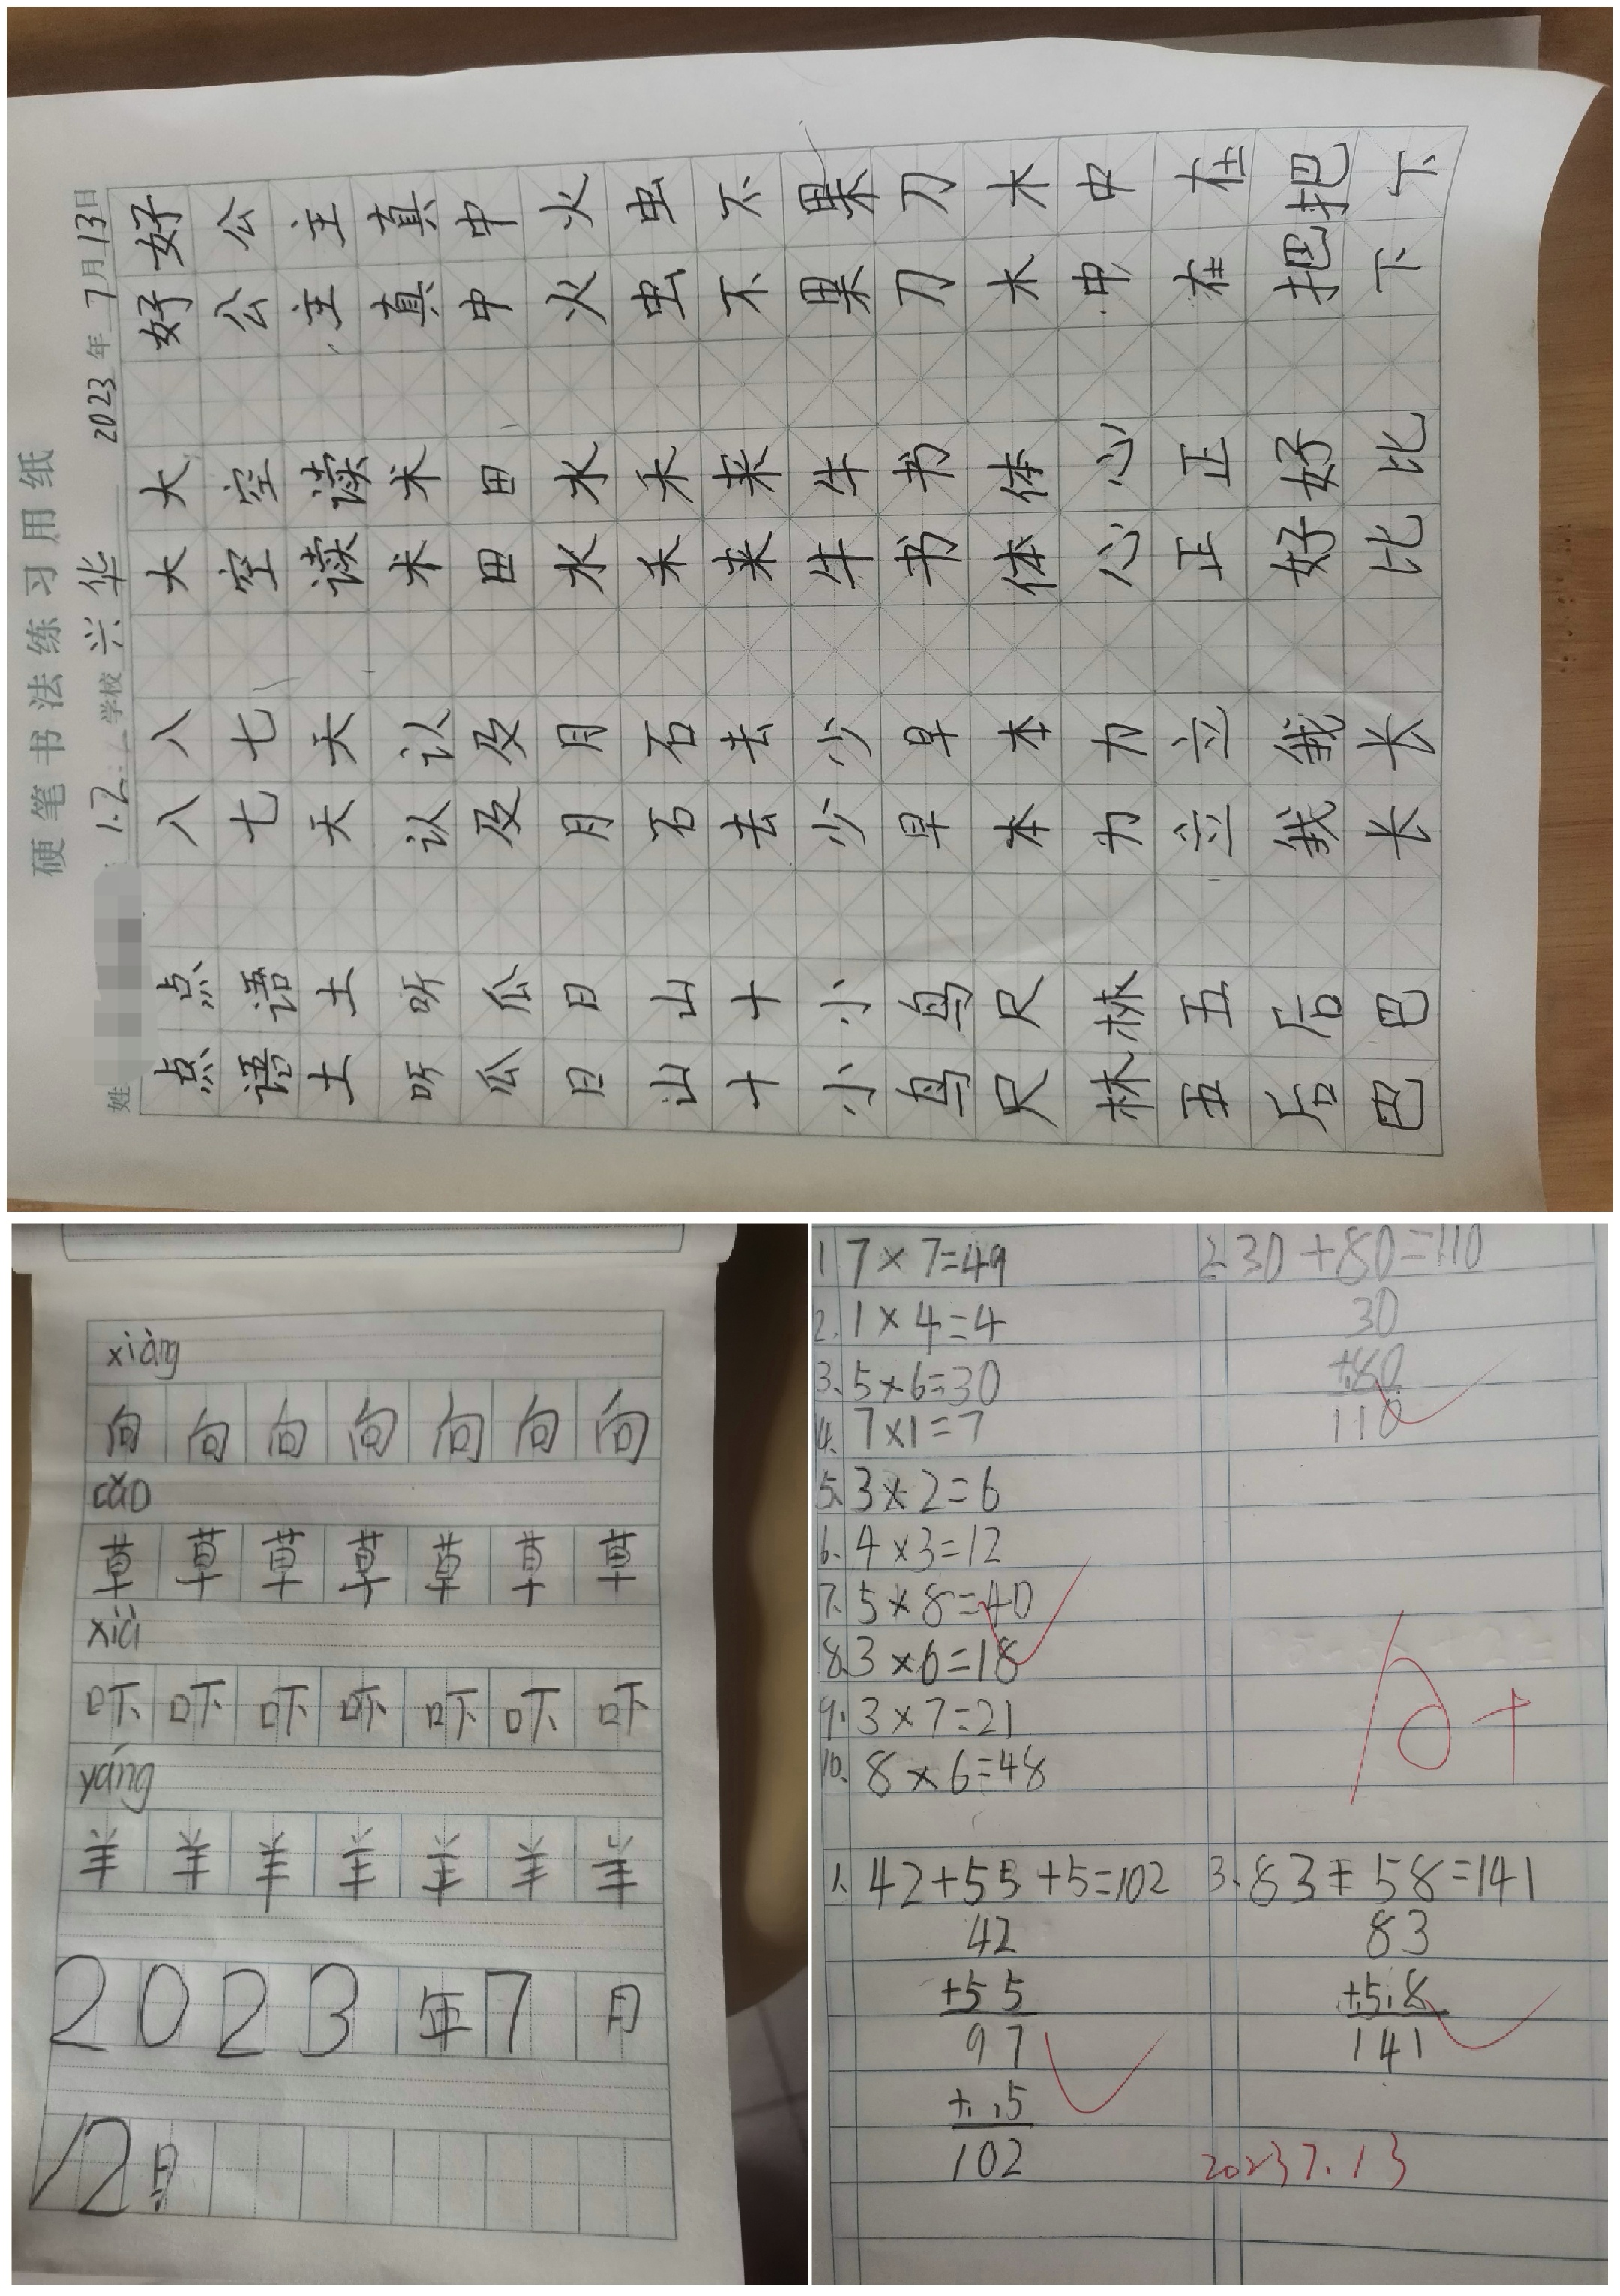 硬笔书法练习用纸
姓 1.2 学校 兴华 2023年7月13日
点点 八八 大大 好好
语语 七七 空空 公公
土土 天天 读读 主主
听听 认认 术术 真真
瓜瓜 及及 田田 中中
日日 月月 水水 火火
山山 石石 禾禾 虫虫
十十 去去 来来 不不
小小 少少 牛牛 果果
鸟鸟 早早 书书 刀刀
尺尺 本本 体体 木木
林林 力力 心心 中中
五五 立立 正正 在在
后后 我我 好好 把把
巴巴 长长 比比 下下
xiàng
向向向向向向向
cǎo
xià
吓吓吓吓吓吓吓
yáng
羊羊羊羊羊羊羊
2023年7月
12日
1 7×7=49
2. 1×4=4
3、5×6=30
4、7×1=7
5、3×2=6
6、4×3=12
7、5×8=40
8、3×6=18
9、3×7=21
10、8×6=48
1、42+55+5=102
42
+55
97
+5
102
2、30+80=110
30
+80
110
3、83+58=141
83
+58
141
2023 7.13